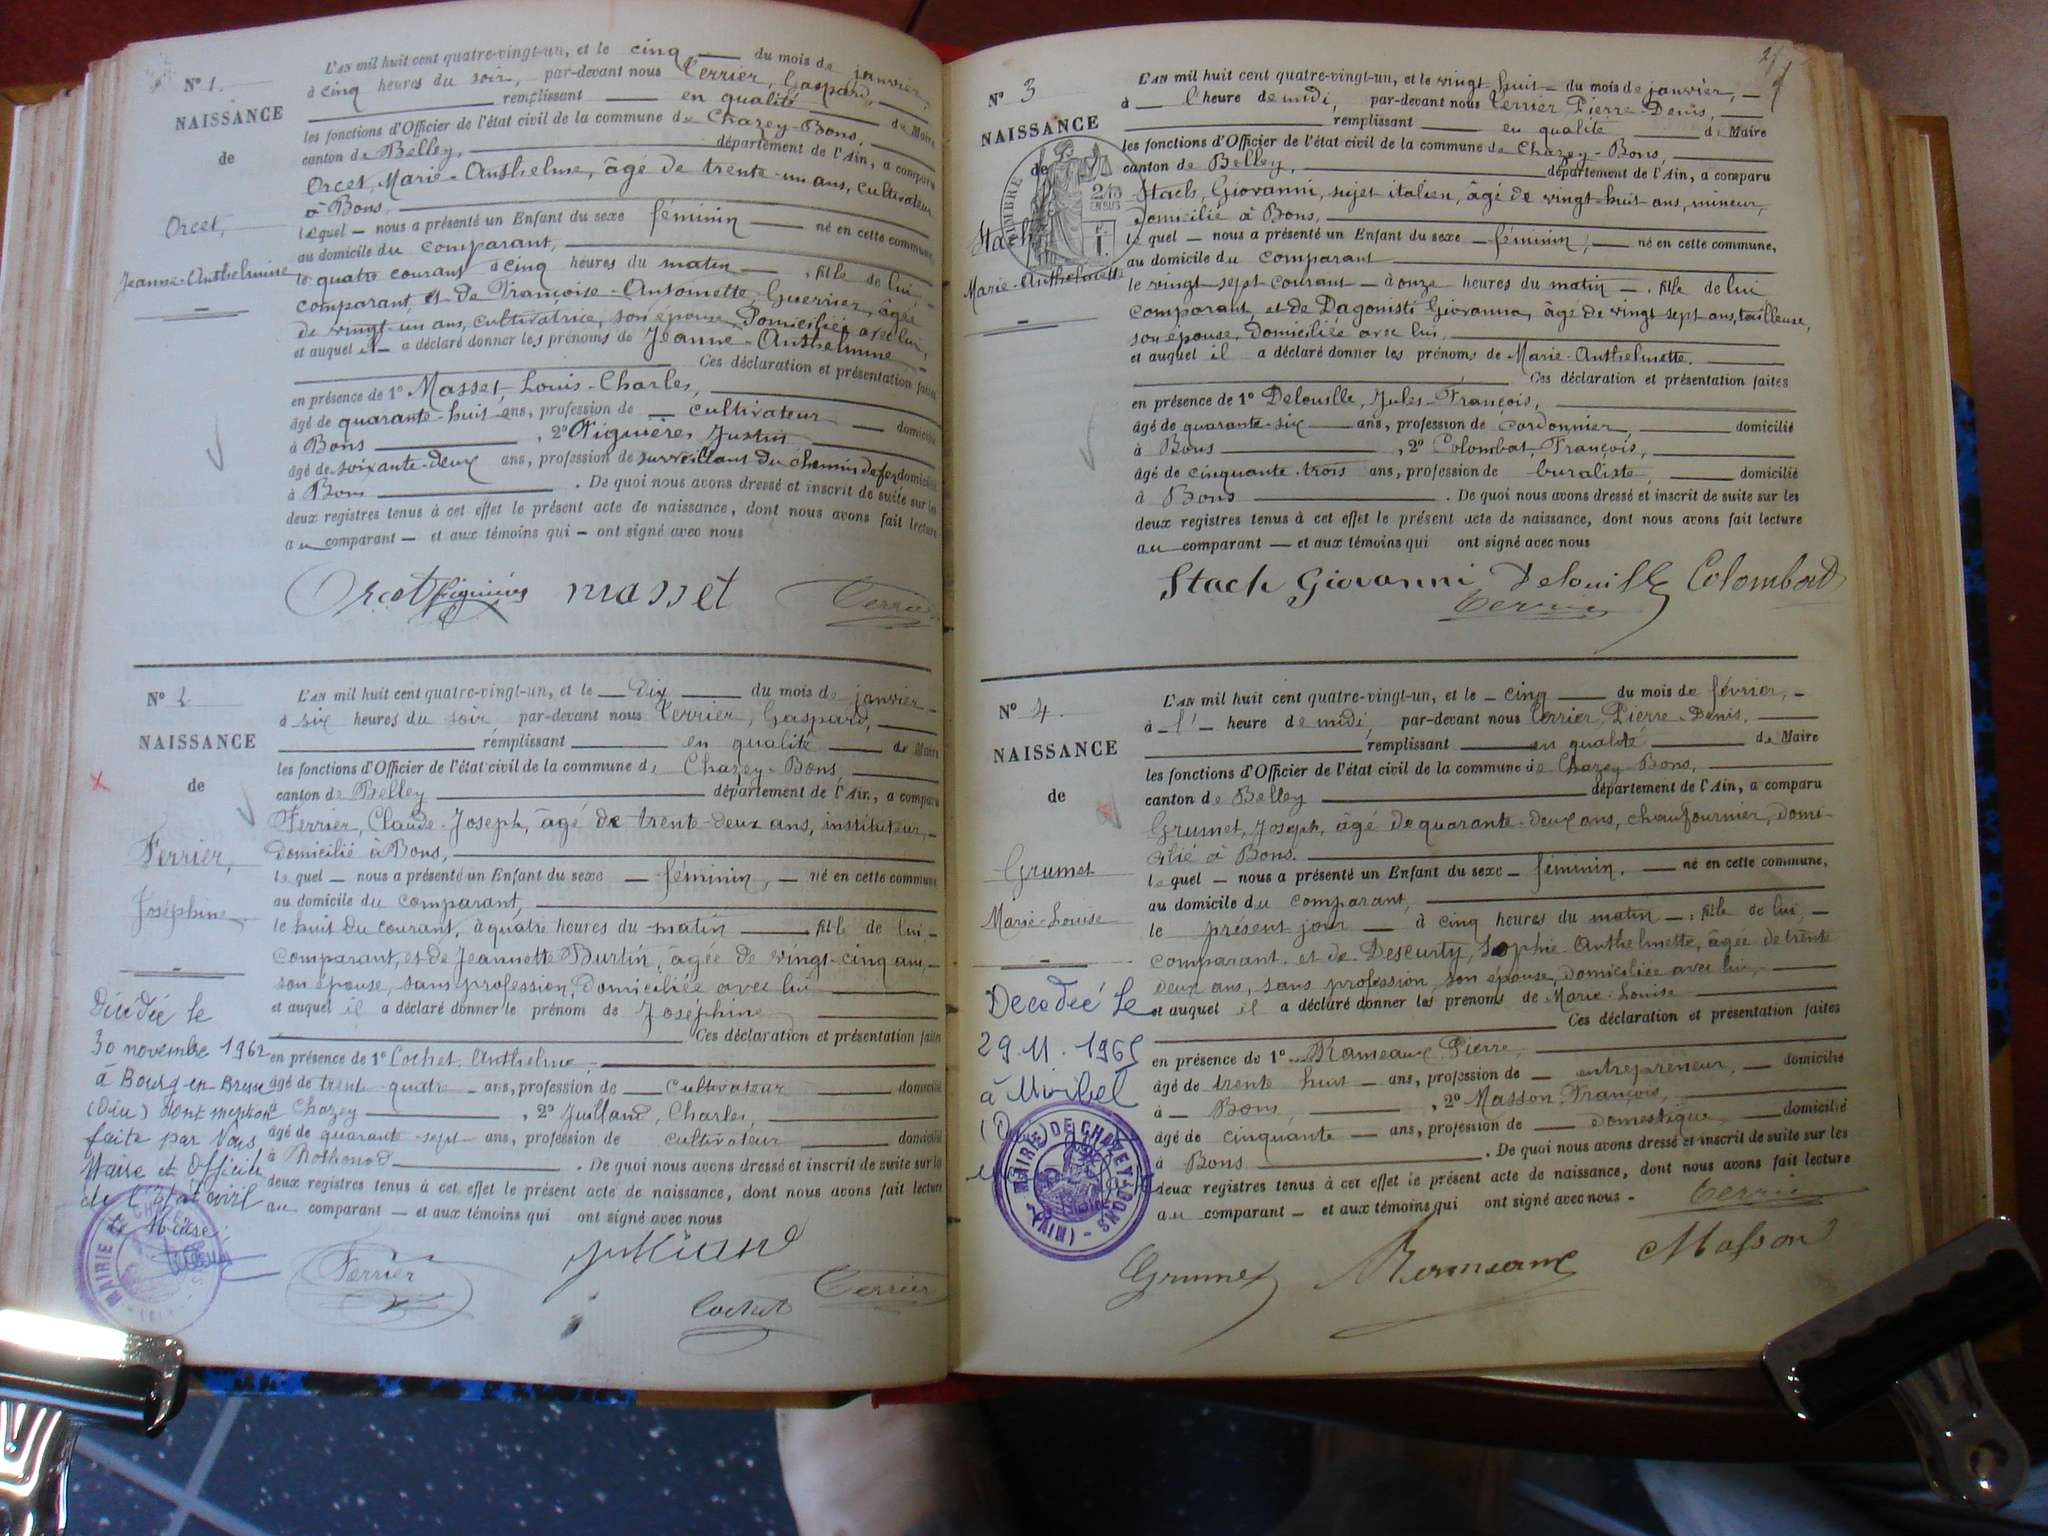 N° 1.
NAISSANCE
de
Orcet,
Jeanne-Anthelmine
L'AN mil huit cent quatre-vingt-un, et le cinq du mois de janvier,
à cinq heures du soir, par-devant nous Terrier, Gaspard,
remplissant en qualité de Maire
les fonctions d'Officier de l'état civil de la commune de Chazey-Bons,
canton de Belley, département de l'Ain, a comparu
Orcet, Marie-Anthelme, âgé de trente-un ans, cultivateur
à Bons.
lequel nous a présenté un Enfant du sexe féminin né en cette commune,
au domicile du comparant,
le quatre courant à cinq heures du matin, fille de lui
comparant, et de Françoise-Antoinette Guerrier, âgée
de vingt-un ans, cultivatrice, son épouse, domiciliée avec lui,
et auquel il a déclaré donner les prénoms de Jeanne-Anthelmine
Ces déclaration et présentation faites
en présence de 1° Masset, Louis-Charles,
âgé de quarante-huit ans, profession de cultivateur domicilié
à Bons, 2° Figuières, Justin
âgé de soixante-deux ans, profession de surveillant du chemin de fer domicilié
à Bons. De quoi nous avons dressé et inscrit de suite sur les
deux registres tenus à cet effet le présent acte de naissance, dont nous avons fait lecture
au comparant et aux témoins qui ont signé avec nous
Orcet Figuières masset Terrier
N° 2
NAISSANCE
de
Ferrier,
Joséphine
Décédée le
30 novembre 1962
à Bourg-en-Bresse
(Ain) dont mention
faite par Nous
Maire et Officier
de l'état civil
Le Maire,
MAIRIE DE CHAZEY-BONS (AIN)
L'AN mil huit cent quatre-vingt-un, et le dix du mois de janvier
à six heures du soir par-devant nous Terrier, Gaspard,
remplissant en qualité de Maire
les fonctions d'Officier de l'état civil de la commune de Chazey-Bons,
canton de Belley département de l'Ain, a comparu
Ferrier, Claude-Joseph, âgé de trente-deux ans, instituteur,
domicilié à Bons,
lequel nous a présenté un Enfant du sexe féminin, né en cette commune
au domicile du comparant,
le huit du courant, à quatre heures du matin fille de lui
comparant, et de Jeannette Burtin, âgée de vingt-cinq ans,
son épouse, sans profession, domiciliée avec lui
et auquel il a déclaré donner le prénom de Joséphine
Ces déclaration et présentation faites
en présence de 1° Cochet Anthelme,
âgé de trente-quatre ans, profession de cultivateur domicilié
à Chazey, 2° Juilland, Charles,
âgé de quarante-sept ans, profession de cultivateur domicilié
à Rothonod. De quoi nous avons dressé et inscrit de suite sur les
deux registres tenus à cet effet le présent acte de naissance, dont nous avons fait lecture
au comparant et aux témoins qui ont signé avec nous
Ferrier Juilland
Cochet Terrier
N° 3
NAISSANCE
de
Stach
Marie-Anthelmette
TIMBRE
L'AN mil huit cent quatre-vingt-un, et le vingt-huit du mois de janvier,
à l'heure de midi, par-devant nous Terrier Pierre-Denis,
remplissant en qualité de Maire
les fonctions d'Officier de l'état civil de la commune de Chazey-Bons,
canton de Belley, département de l'Ain, a comparu
Stach, Giovanni, sujet italien, âgé de vingt-huit ans, mineur,
domicilié à Bons,
lequel nous a présenté un Enfant du sexe féminin, né en cette commune,
au domicile du comparant
le vingt-sept courant à onze heures du matin, fille de lui
comparant et de Dagonisti Giovanna, âgé de vingt sept ans, tailleuse,
son épouse, domiciliée avec lui,
et auquel il a déclaré donner les prénoms de Marie-Anthelmette.
Ces déclaration et présentation faites
en présence de 1° Delouille, Jules-François,
âgé de quarante-six ans, profession de cordonnier, domicilié
à Bons, 2° Colombat, François,
âgé de cinquante-trois ans, profession de buraliste, domicilié
à Bons. De quoi nous avons dressé et inscrit de suite sur les
deux registres tenus à cet effet le présent acte de naissance, dont nous avons fait lecture
au comparant et aux témoins qui ont signé avec nous
Stach Giovanni Delouille Colombat
Terrier
N° 4.
NAISSANCE
de
Grumet
Marie-Louise
Décédée le
29.11.1965
à Miribel
MAIRIE DE CHAZEY-BONS (AIN)
L'AN mil huit cent quatre-vingt-un, et le cinq du mois de février,
à l' heure de midi, par-devant nous Terrier, Pierre-Denis,
remplissant en qualité de Maire
les fonctions d'Officier de l'état civil de la commune de Chazey-Bons,
canton de Belley département de l'Ain, a comparu
Grumet, Joseph, âgé de quarante-deux ans, chaufournier, domi-
cilié à Bons.
lequel nous a présenté un Enfant du sexe féminin, né en cette commune,
au domicile du comparant,
le présent jour à cinq heures du matin, fille de lui,
comparant et de Descurty, Sophie-Anthelmette, âgée de trente
deux ans, sans profession, son épouse, domiciliée avec lui,
et auquel il a déclaré donner les prénoms de Marie-Louise
Ces déclaration et présentation faites
en présence de 1° Rameaux, Pierre,
âgé de trente huit ans, profession de entrepreneur, domicilié
à Bons, 2° Masson, François,
âgé de cinquante ans, profession de domestique, domicilié
à Bons. De quoi nous avons dressé et inscrit de suite sur les
deux registres tenus à cet effet le présent acte de naissance, dont nous avons fait lecture
au comparant et aux témoins qui ont signé avec nous. Terrier
Grumet Masson